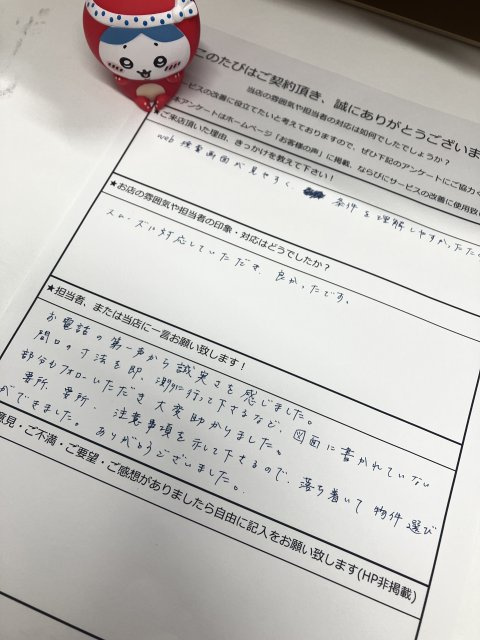 このたびはご契約頂き、誠にありがとうございま
当店の雰囲気や担当者の対応は如何でしたでしょうか？
サービスの改善に役立てたいと考えておりますので、ぜひ下記のアンケートにご協力く
本アンケートはホームページ「お客様の声」に掲載、ならびにサービスの改善に使用致
ご来店頂いた理由、きっかけを教えて下さい！
web 検索画面が見やすく 条件を理解しやすかったた
★お店の雰囲気や担当者の印象・対応はどうでしたか？
スムーズに対応していただき、良かったです。
★担当者、または当店に一言お願い致します！
お電話の第一声から誠実さを感じました。
間口の寸法を即、測りに行って下さるなど、図面に書かれていない
部分もフォローいただき大変助かりました。
要所、要所、注意事項を示して下さるので、落ち着いて物件選び
ができました。ありがとうございました。
意見・ご不満・ご要望・ご感想がありましたら自由に記入をお願い致します(HP非掲載)